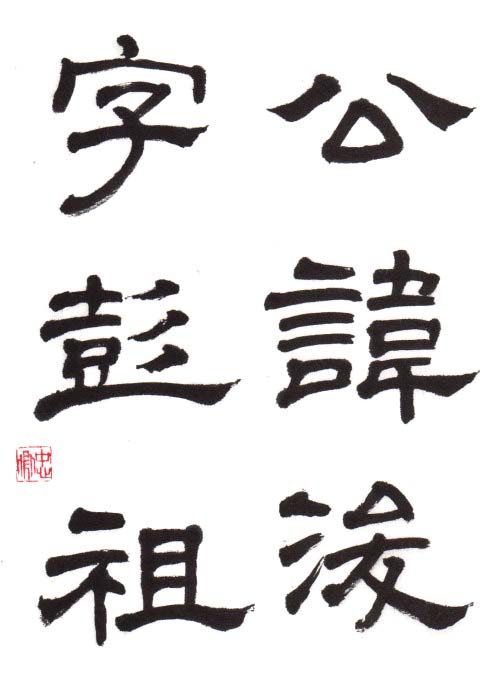 公諱浚
字彭祖